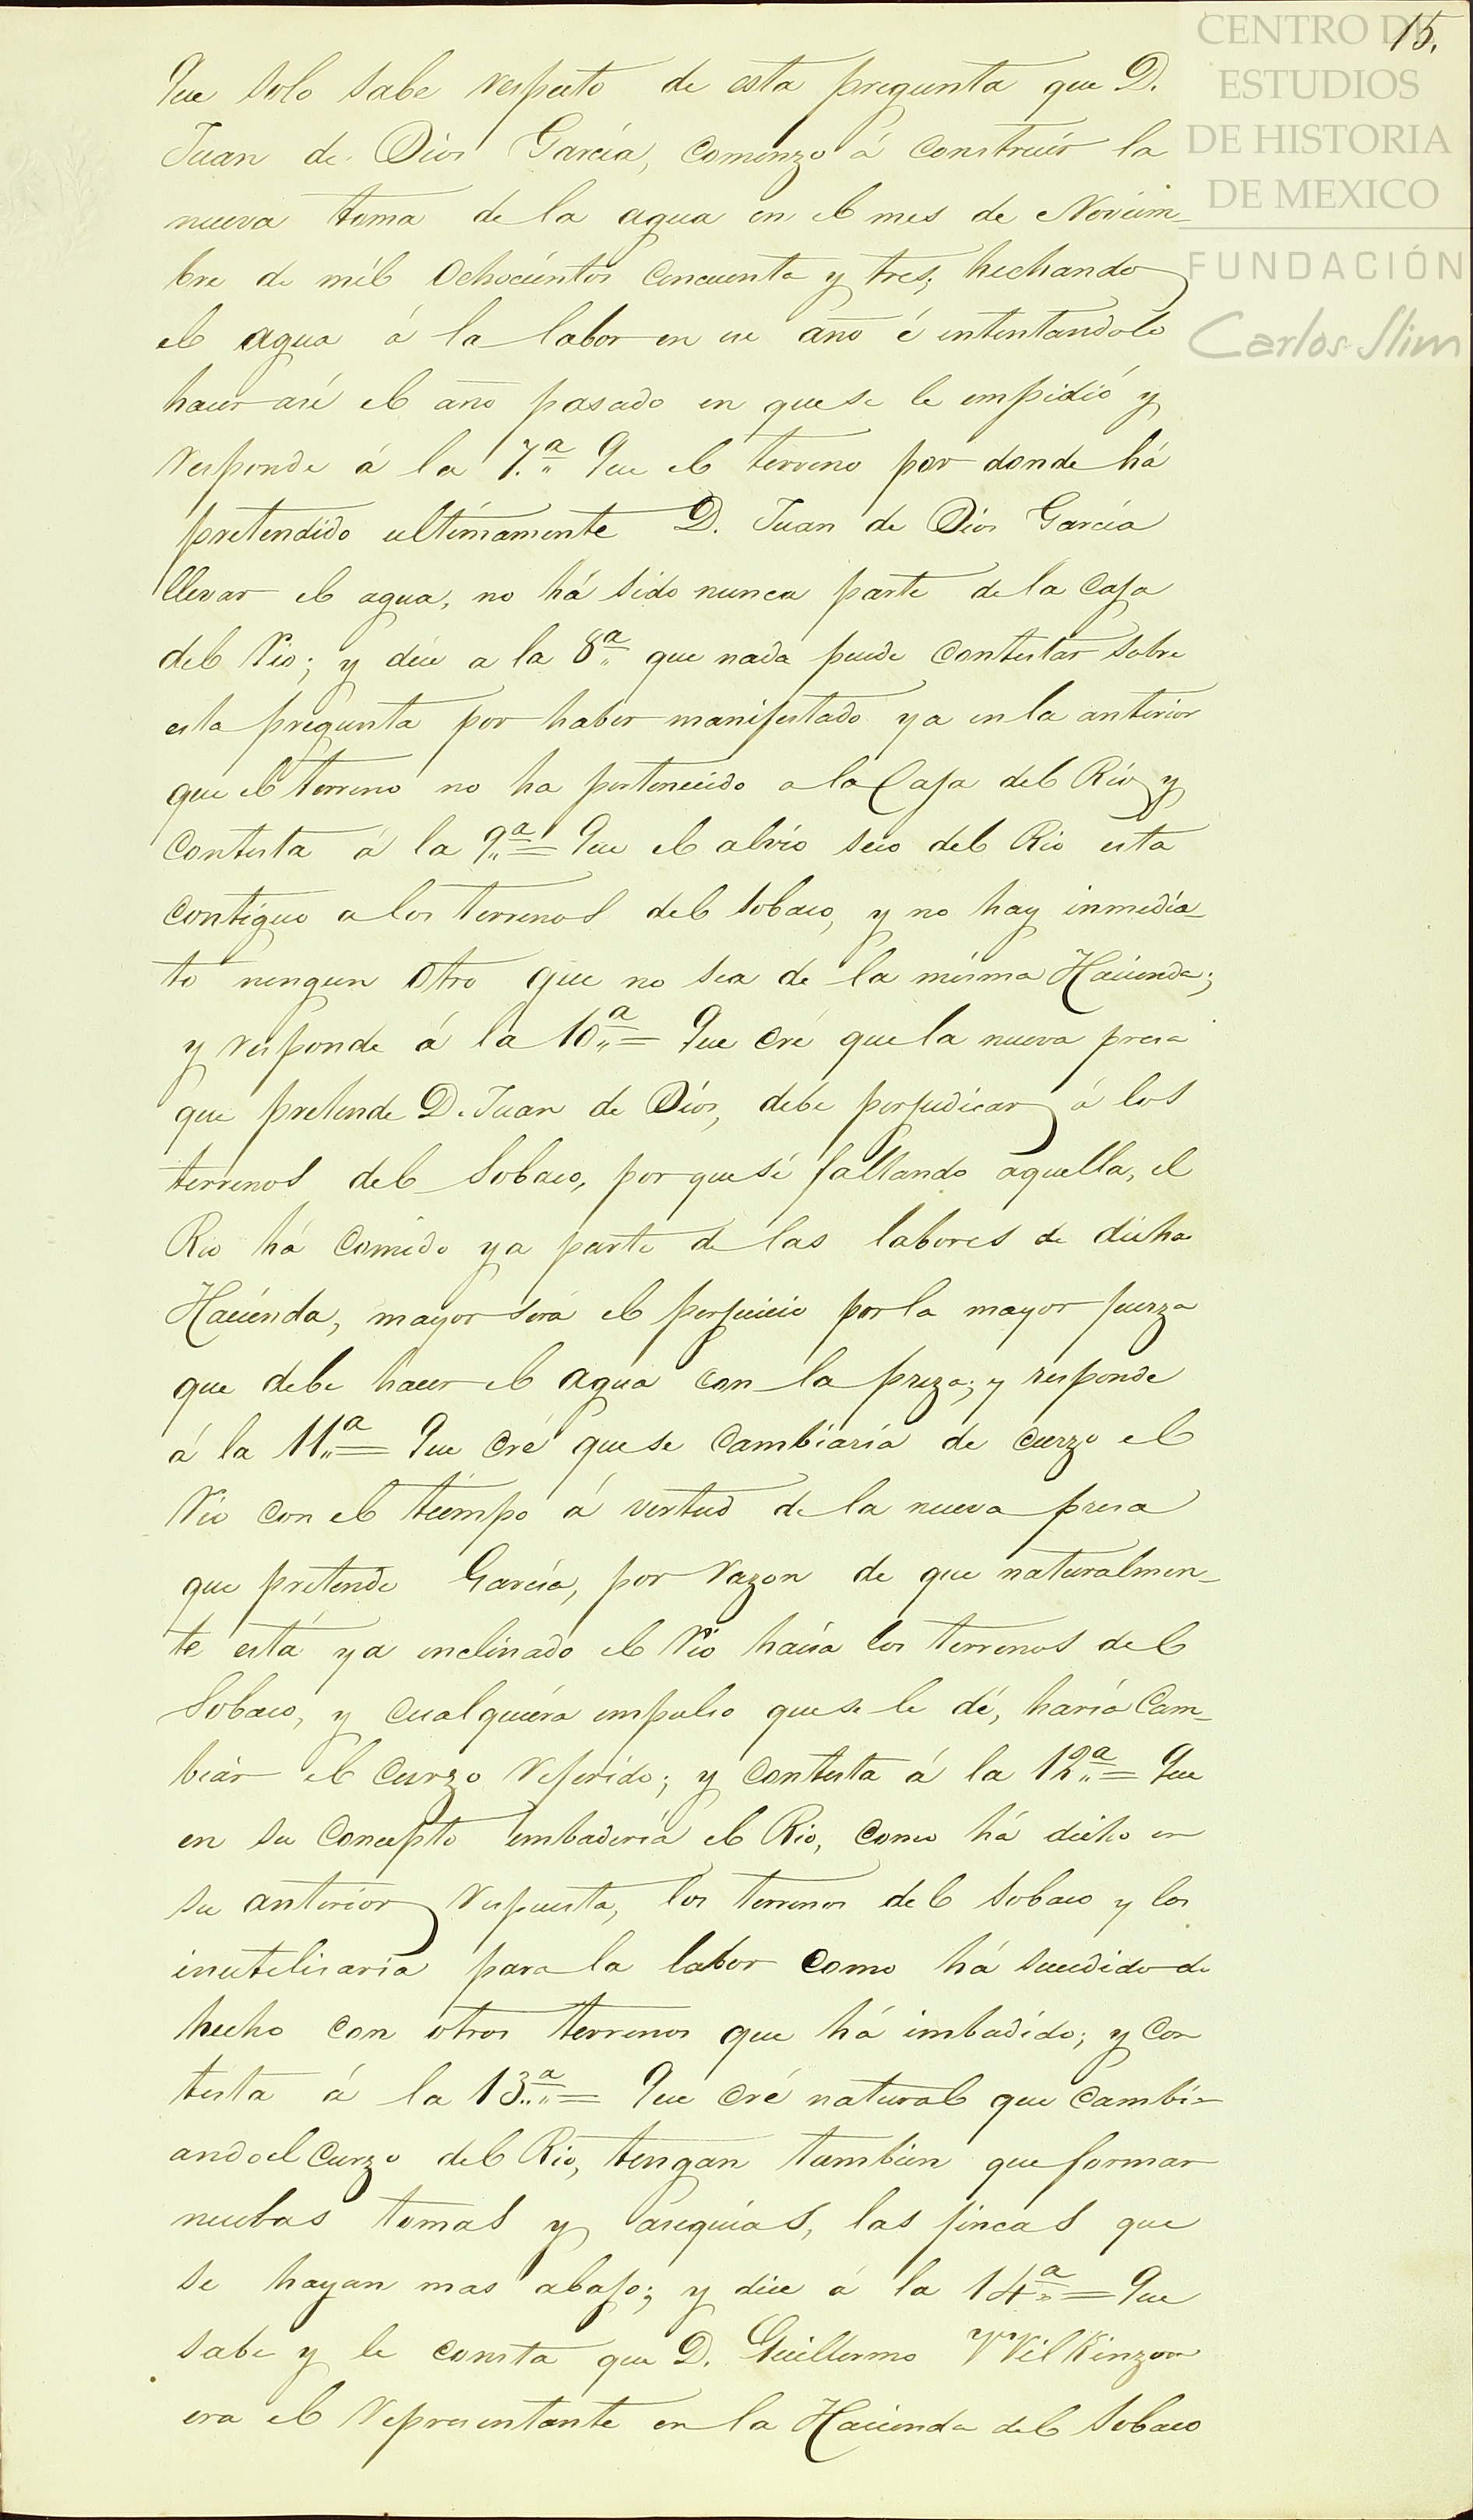 15.
CENTRO DE
ESTUDIOS
DE HISTORIA
DE MEXICO
FUNDACIÓN
Carlos Slim
Que solo sabe respecto de esta pregunta que D.
Juan de Dios García, comenzo á construir la
nueva toma de la agua en el mes de Noviem-
bre de mil ochocientos cincuenta y tres, hechando
el agua á la labor en ese año é intentandolo
hacer asi el año pasado en que se le impidió y
responde á la 7.ª Que el terreno por donde há
pretendido ultimamente D. Juan de Dios García
llevar el agua, no há sido nunca parte de la caja
del Rio; y dice a la 8ª que nada puede contestar sobre
esta pregunta por haber manifestado ya en la anterior
que el terreno no ha pertenecido a la Caja del Rio y
contesta á la 9ª = Que el alvio seco del Rio esta
contiguo a los terrenos del Sobaco, y no hay inmedia-
to ningun otro que no sea de la misma Hacienda;
y responde á la 10ª = Que cré que la nueva presa
que pretende D. Juan de Dios, debe perjudicar á los
terrenos del Sobaco, porque si faltando aquella, el
Rio há comido ya parte de las labores de dicha
Hacienda, mayor será el perjuicio por la mayor fuerza
que debe hacer el agua con la preza; y responde
á la 11ª = Que cré que se cambiaria de curzo el
Rio con el tiempo á vertud de la nueva presa
que pretende García, por razon de que naturalmen-
te está ya inclinado el Rio hacia los terrenos del
Sobaco, y cualquiera impulso que se le dé, haría cam-
biar el curzo referido; y contesta á la 12ª = Que
en su concepto imbadiría el Rio, como há dicho en
su anterior respuesta, los terrenos del Sobaco y los
inutilisaria para la labor como há sucedido de
hecho con otros terrenos que há imbadido; y con
testa á la 13ª = Que cré natural que cambi-
ando el curzo del Rio, tengan tambien que formar
nuebas tomas y asequias, las fincas que
se hayan mas abajo; y dice á la 14ª = Que
sabe y le consta que D. Guillermo Wilkinzon
era el representante en la Hacienda del Sobaco